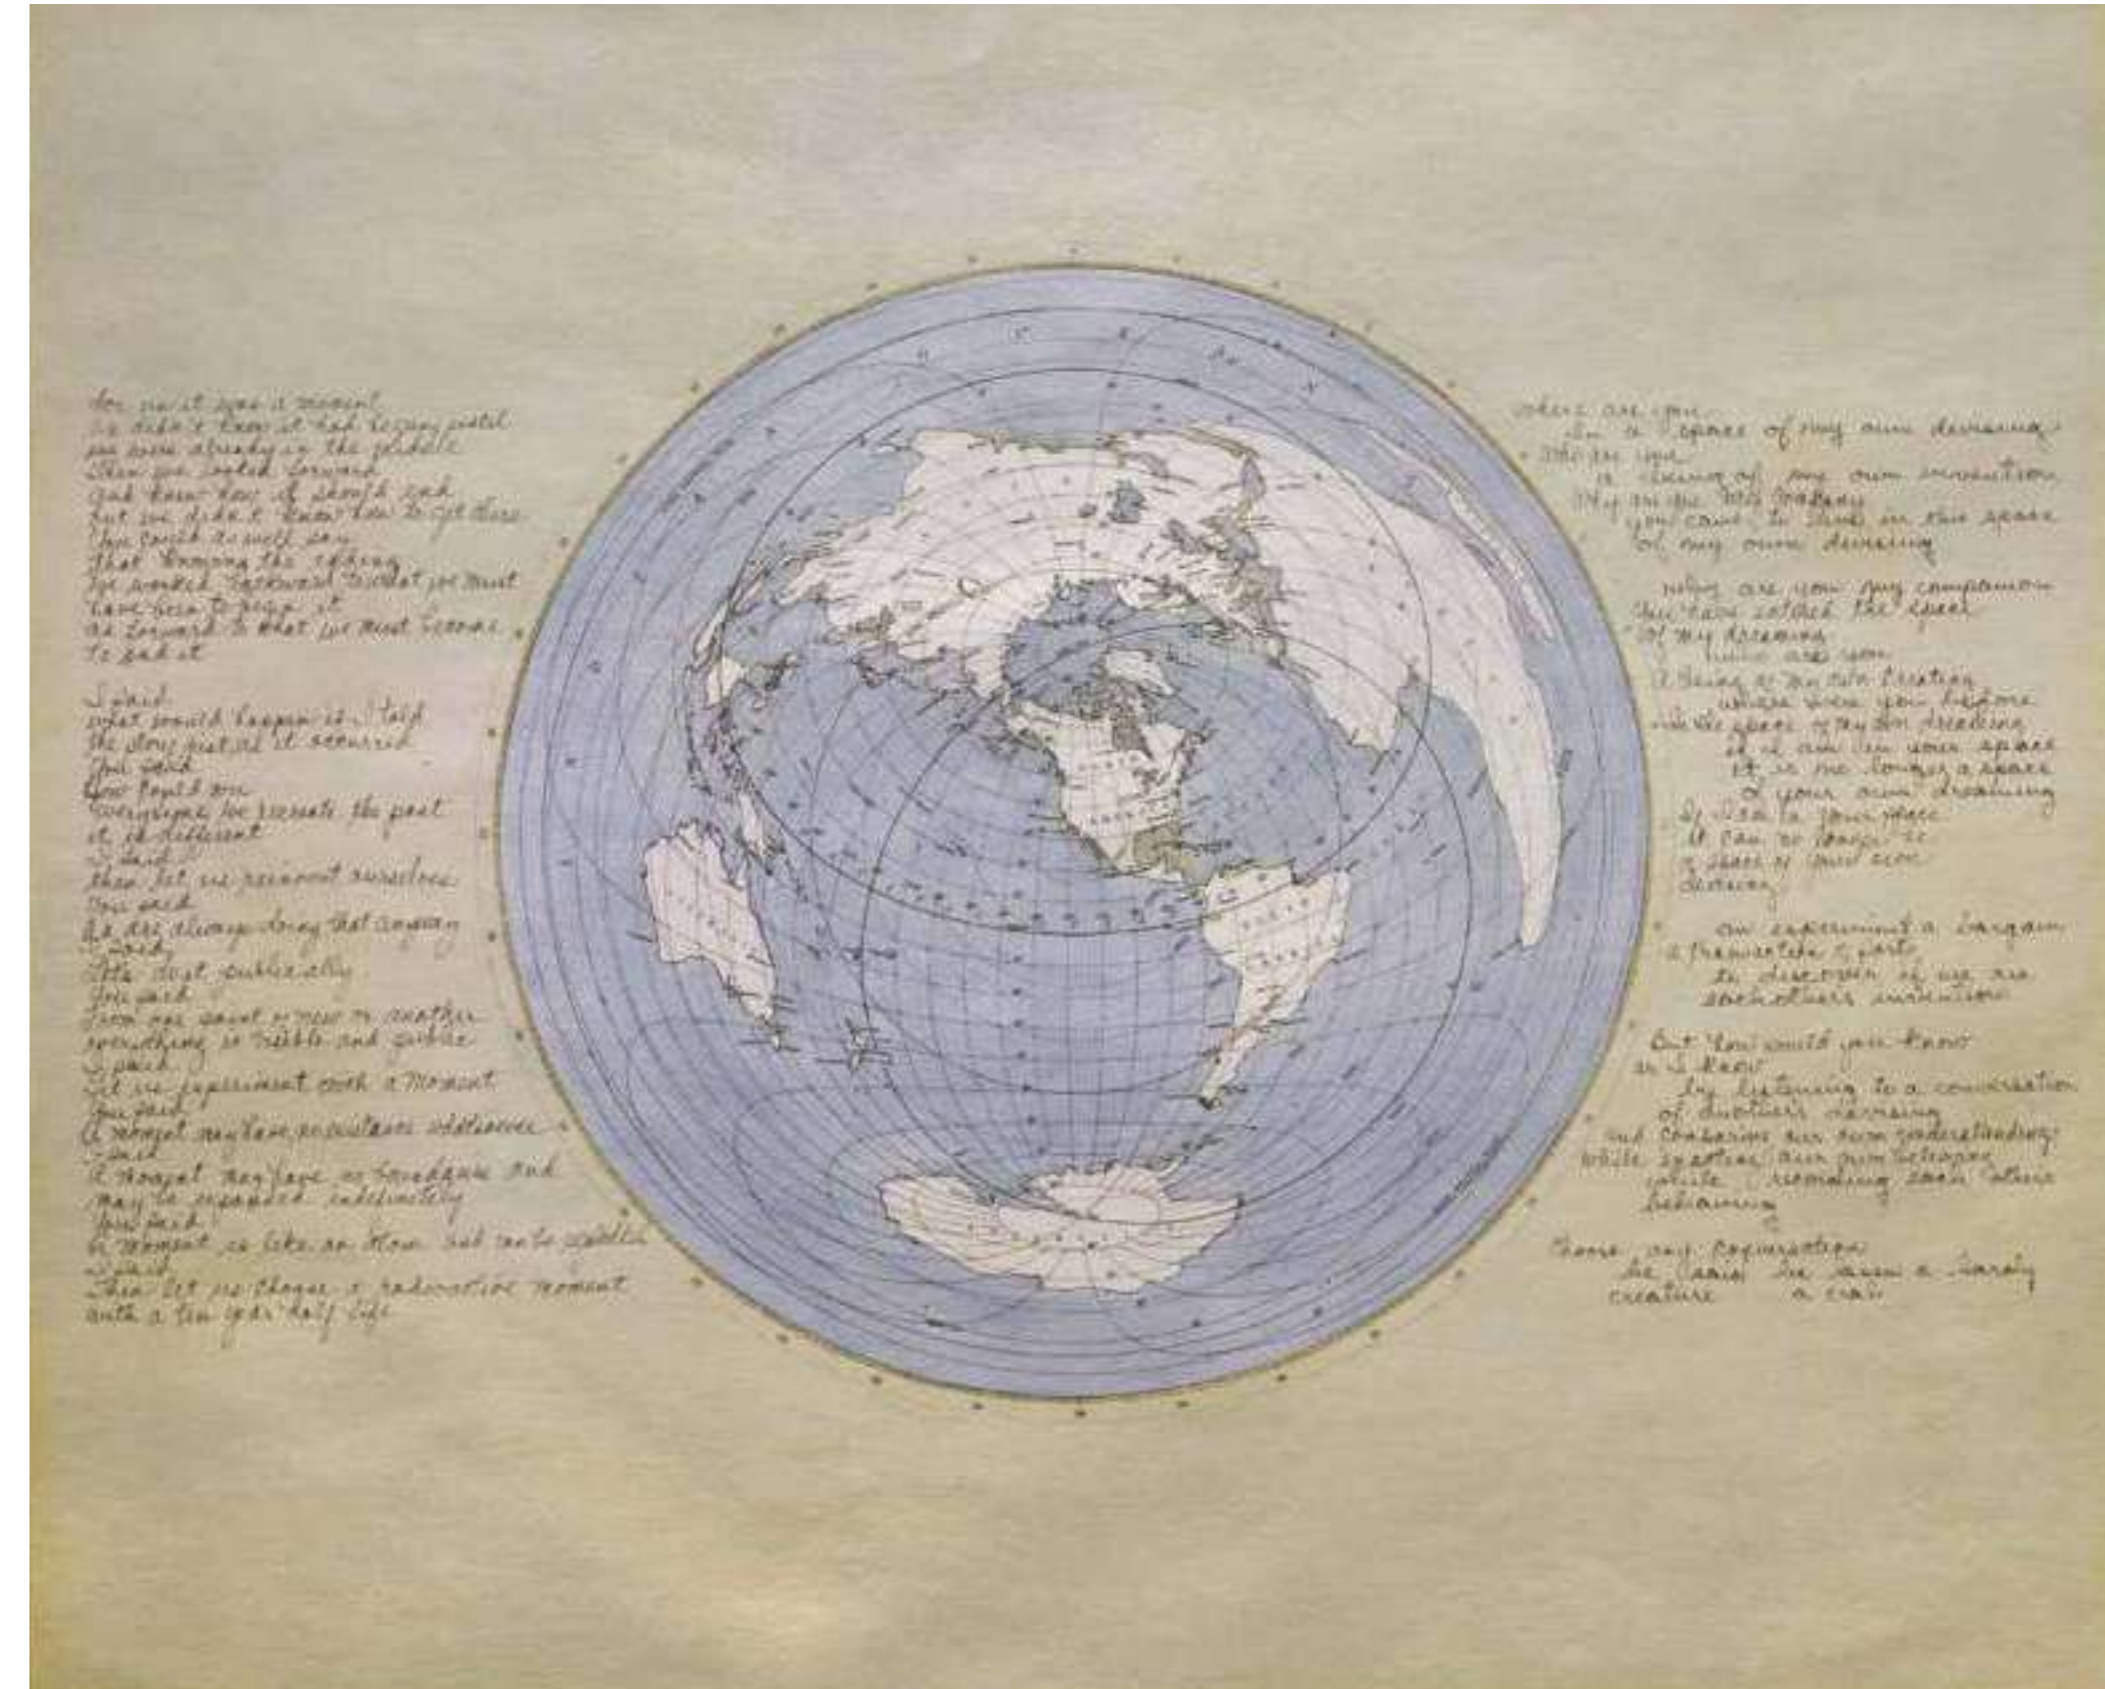 for us it was a moment
we didn't know it had begun until
we were already in the middle
Then we looked forward
and knew how it should end
but we didn't know how to get there
You could as well say
that knowing the ending
we worked backward to what we must
have been to begin it
as forward to what we must become
to end it
I said
what would happen if I told
the story just as it occurred
You said
How could you
Everytime we recreate the past
it is different
I said
then let us reinvent ourselves
You said
We are always doing that anyway
I said
Let's do it publically
You said
From one point of view or another
everything is visible and public
I said
Let us experiment with a moment
You said
A moment may have no existence whatsoever
I said
A moment may have no boundaries and
may be expanded indefinitely
You said
A moment is like an atom and can be split
I said
Then let us choose a radioactive moment
with a ten year half life
where are you
in a space of my own devising
Who are you
a being of my own invention
Why are we here
you came to live in this space
of my own devising
why are you my companion
You have entered the space
of my dreaming
who are you
A being of my own creating
where were you before
in the space of my own dreaming
if I am in your space
it is no longer a space
of your own dreaming
If I am in your space
it can no longer be
a space of your own
devising
an experiment a bargain
a transaction of sorts
to discover if we are
each others invention
But how would you know
as I know
by listening to a conversation
of another's devising
and comparing our own understanding
while our own behaving
while each others
behaving
Choose any conversation
he said he was a hardy
creature a crab